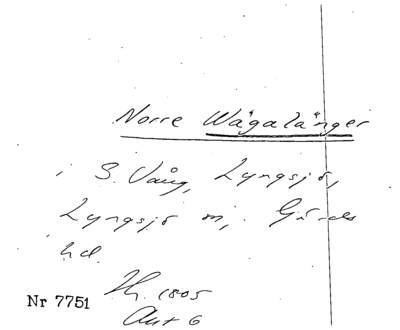 Norre Wägalänger
i S. Vång, Lyngsjö,
Lyngsjö sn, Gärds
hd.
Nr 7751 Th. 1805
Akt 6